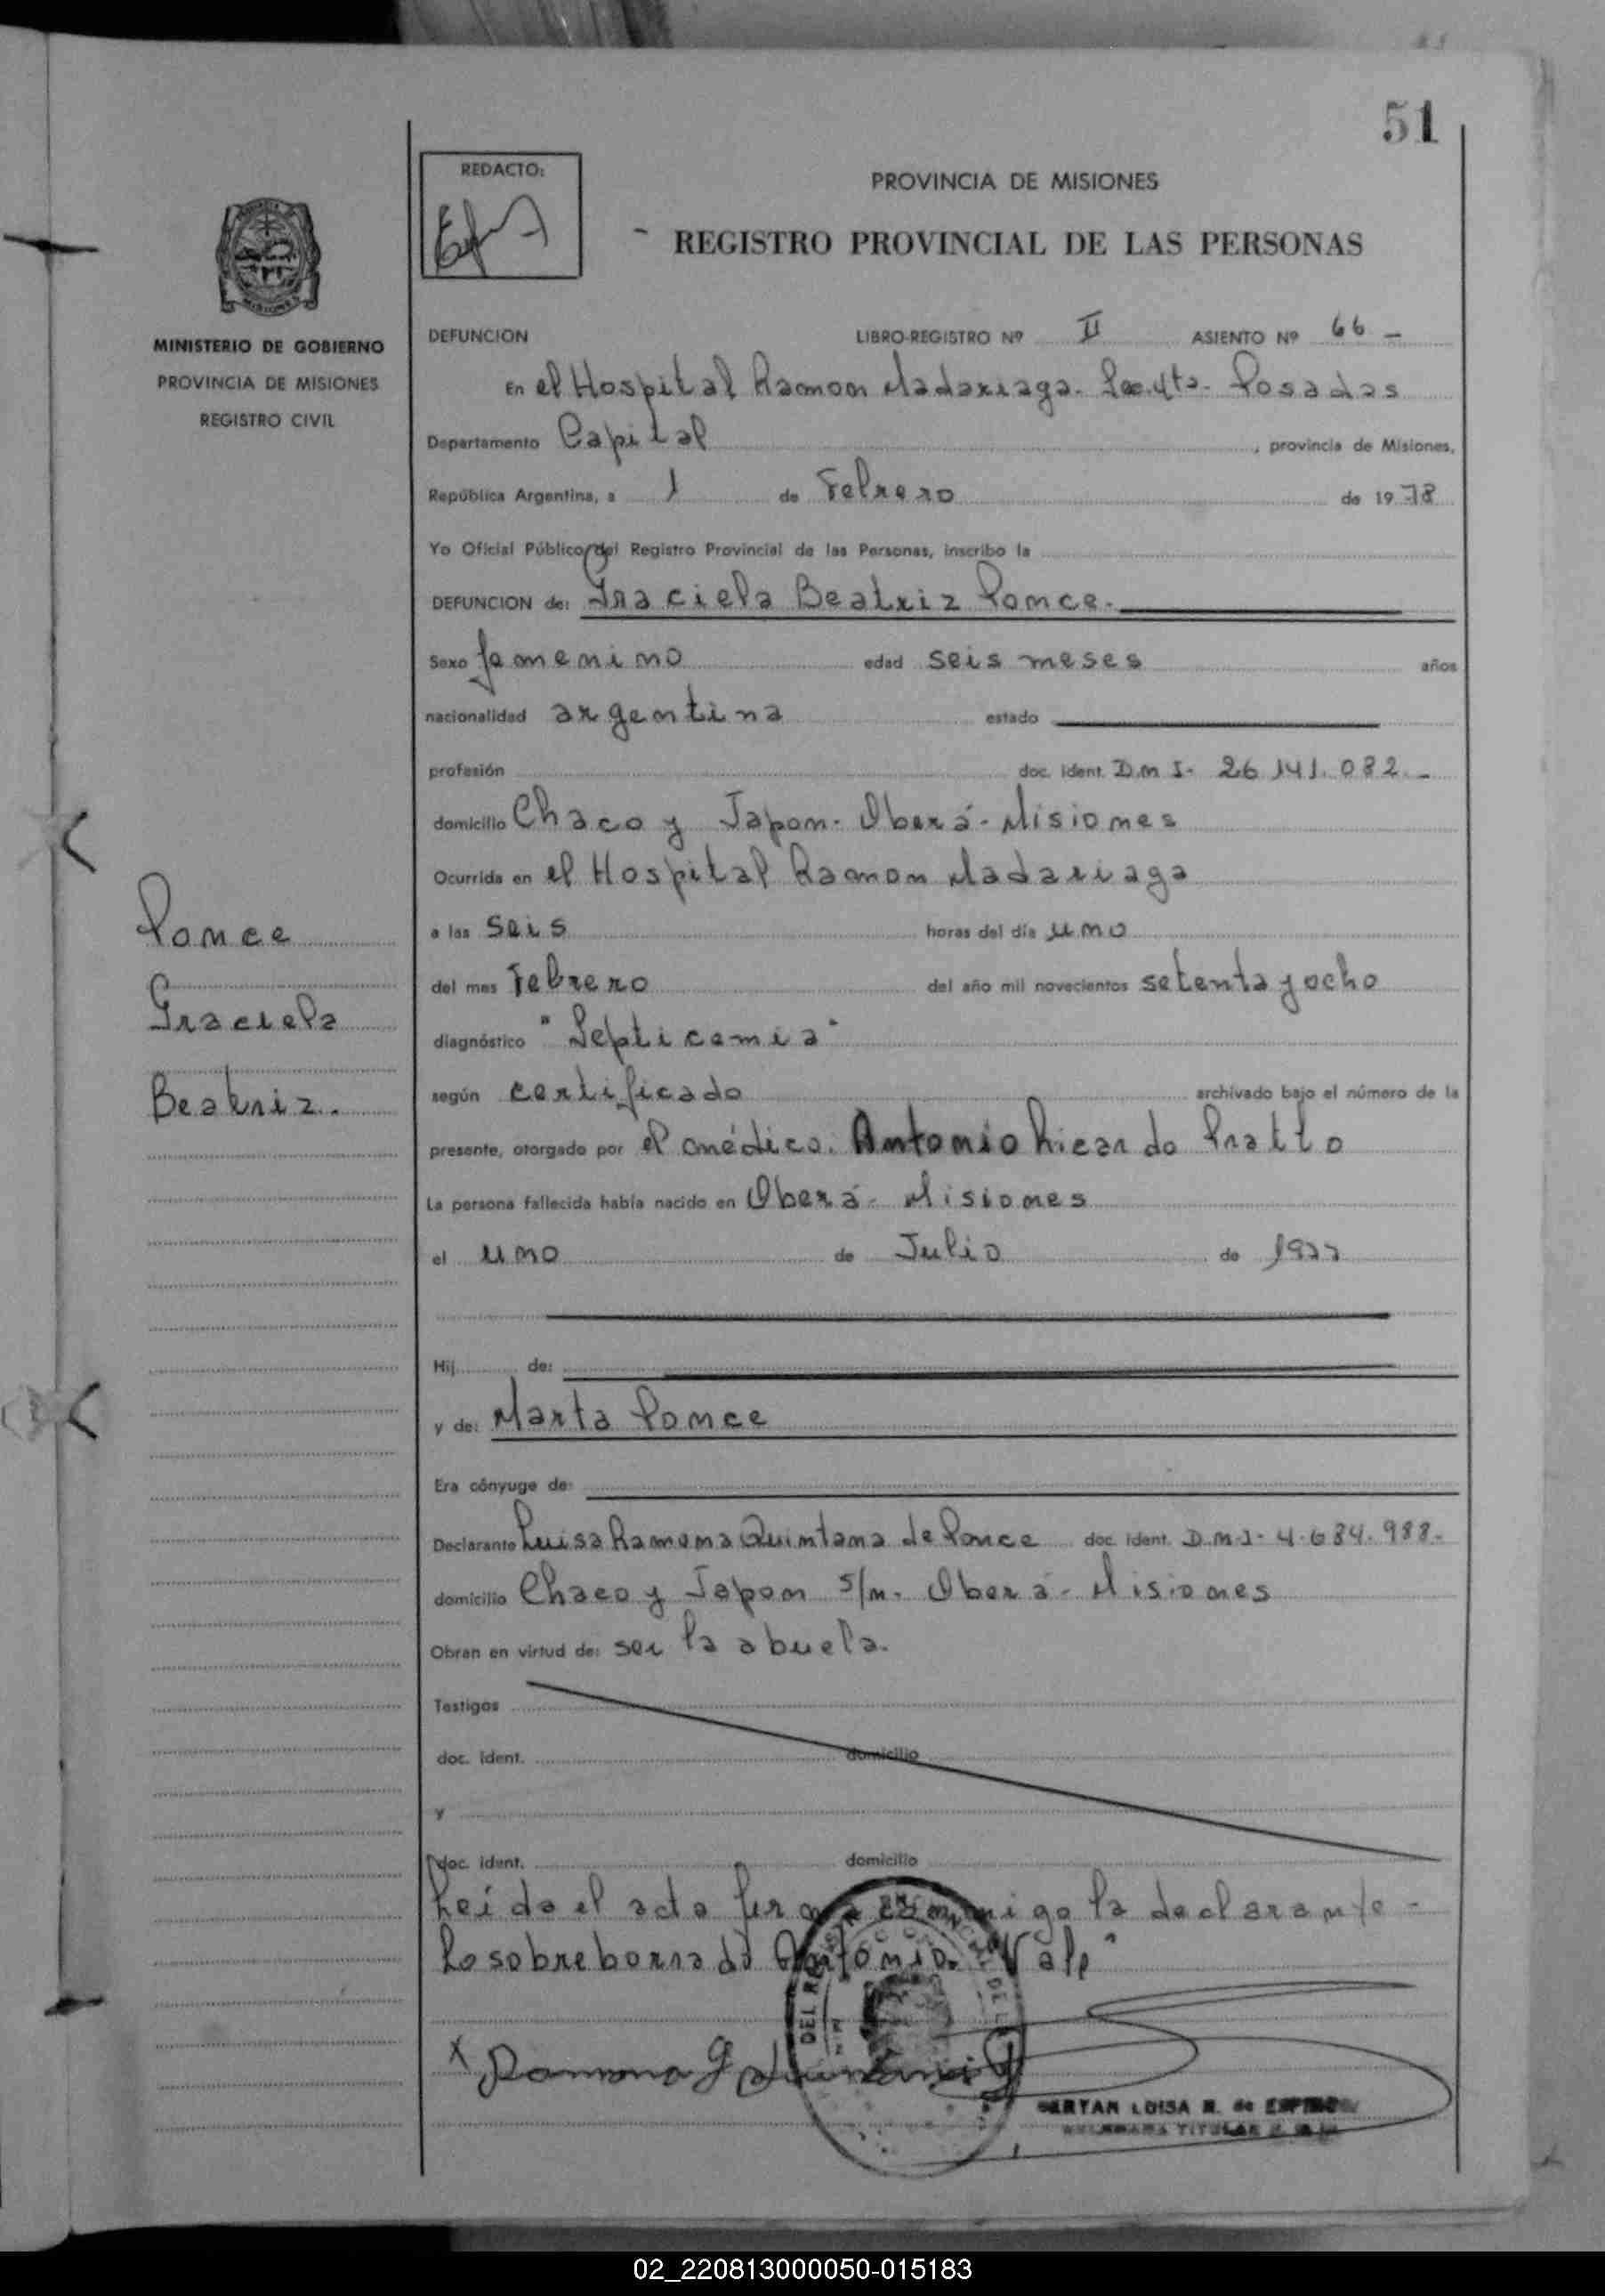 51
REDACTO:
PROVINCIA DE MISIONES
REGISTRO PROVINCIAL DE LAS PERSONAS
MINISTERIO DE GOBIERNO
PROVINCIA DE MISIONES
REGISTRO CIVIL
DEFUNCION LIBRO-REGISTRO Nº II ASIENTO Nº 66 -
En el Hospital Ramon Madariaga. Sec. 4ta. Posadas
Departamento Capital, provincia de Misiones,
República Argentina, a 1 de Febrero de 1978
Yo Oficial Público del Registro Provincial de las Personas, inscribo la
DEFUNCION de: Graciela Beatriz Ponce.
Sexo femenino edad seis meses años
nacionalidad argentina estado
profesión doc. ident. D.N.I. 26.141.082.-
domicilio Chaco y Japon. Oberá - Misiones
Ocurrida en el Hospital Ramon Madariaga
a las seis horas del día uno
del mes Febrero del año mil novecientos setenta y ocho
diagnóstico "Septicemia"
según certificado archivado bajo el número de la
presente, otorgado por el médico. Antonio Ricardo Pratto
La persona fallecida había nacido en Oberá - Misiones
el uno de Julio de 1977
Hij de:
y de: Marta Ponce
Era cónyuge de:
Declarante Luisa Ramona Quintana de Ponce doc. ident. D.N.I. 4.684.988.-
domicilio Chaco y Japon s/n. Oberá - Misiones
Obran en virtud de: ser la abuela.
Testigos
doc. ident. domicilio
y
doc. ident. domicilio
Leída el acta firma conmigo la declarante -
Lo sobreborrado Antonio. Vale"
x Ramona Quintana
LUISA
TITULAR
Ponce
Graciela
Beatriz.
02_220813000050-015183